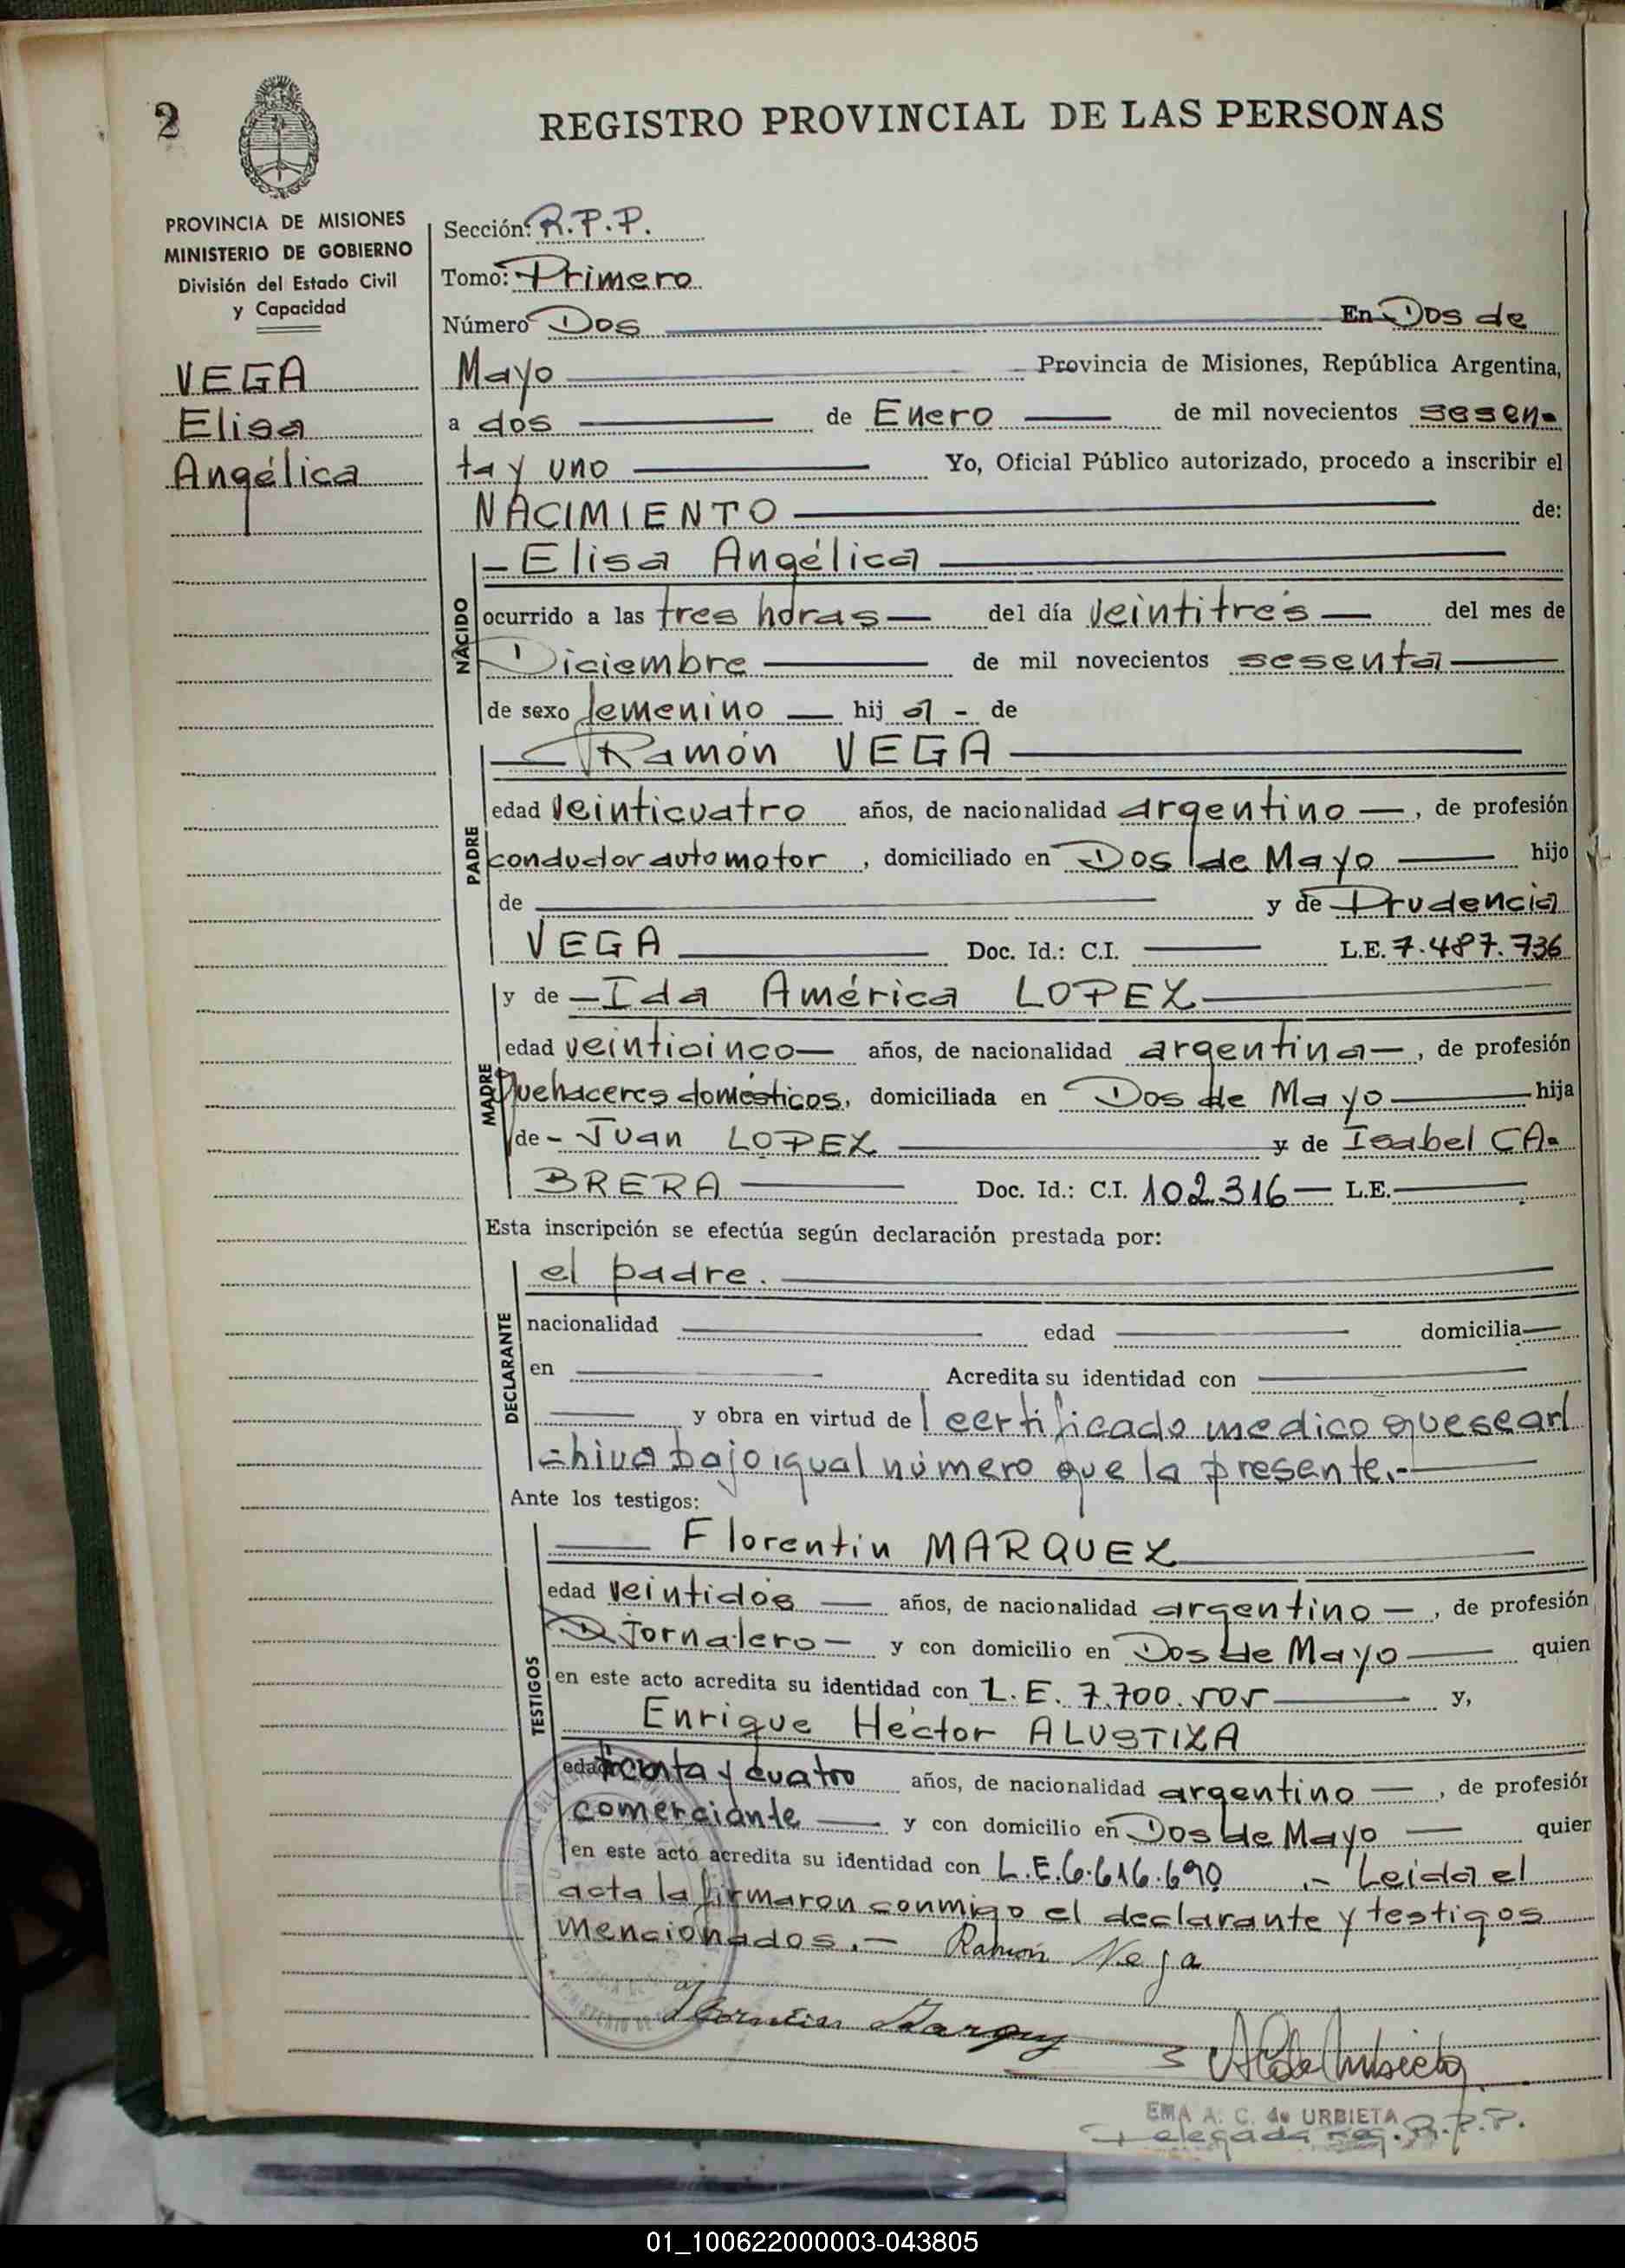 2
REGISTRO PROVINCIAL DE LAS PERSONAS
PROVINCIA DE MISIONES
MINISTERIO DE GOBIERNO
División del Estado Civil
y Capacidad
VEGA
Elisa
Angélica
Sección: R.P.P.
Tomo: Primero
Número Dos En Dos de
Mayo Provincia de Misiones, República Argentina,
a dos de Enero de mil novecientos sesen-
ta y uno Yo, Oficial Público autorizado, procedo a inscribir el
NACIMIENTO de:
NACIDO
- Elisa Angélica
ocurrido a las tres horas — del día veintitrés — del mes de
Diciembre de mil novecientos sesenta
de sexo femenino — hij a - de
PADRE
Ramón VEGA
edad veinticuatro años, de nacionalidad argentino —, de profesión
conductor automotor, domiciliado en Dos de Mayo — hijo
de — y de Prudencia
VEGA — Doc. Id.: C.I. — L.E. 7.487.736
MADRE
y de — Ida América LOPEZ
edad veinticinco — años, de nacionalidad argentina —, de profesión
Quehaceres domésticos, domiciliada en Dos de Mayo — hija
de - Juan LOPEZ — y de Isabel CA-
BRERA — Doc. Id.: C.I. 102.316 — L.E. —
Esta inscripción se efectúa según declaración prestada por:
DECLARANTE
el padre.
nacionalidad — edad — domicilia —
en — Acredita su identidad con —
— y obra en virtud del certificado medico que se ar
chiva bajo igual número que la presente.-
Ante los testigos:
TESTIGOS
Florentin MARQUEZ
edad veintidós — años, de nacionalidad argentino —, de profesión
Jornalero — y con domicilio en Dos de Mayo — quien
en este acto acredita su identidad con L.E. 7.700.505 — y,
Enrique Héctor ALUSTIZA
edad treinta y cuatro años, de nacionalidad argentino —, de profesión
comerciante — y con domicilio en Dos de Mayo — quien
en este acto acredita su identidad con L.E. 6.616.690 .- Leída el
acta la firmaron conmigo el declarante y testigos
mencionados.- Ramón Vega
EMA A. C. de URBIETA
Delegada Reg. R.P.P.
01_100622000003-043805